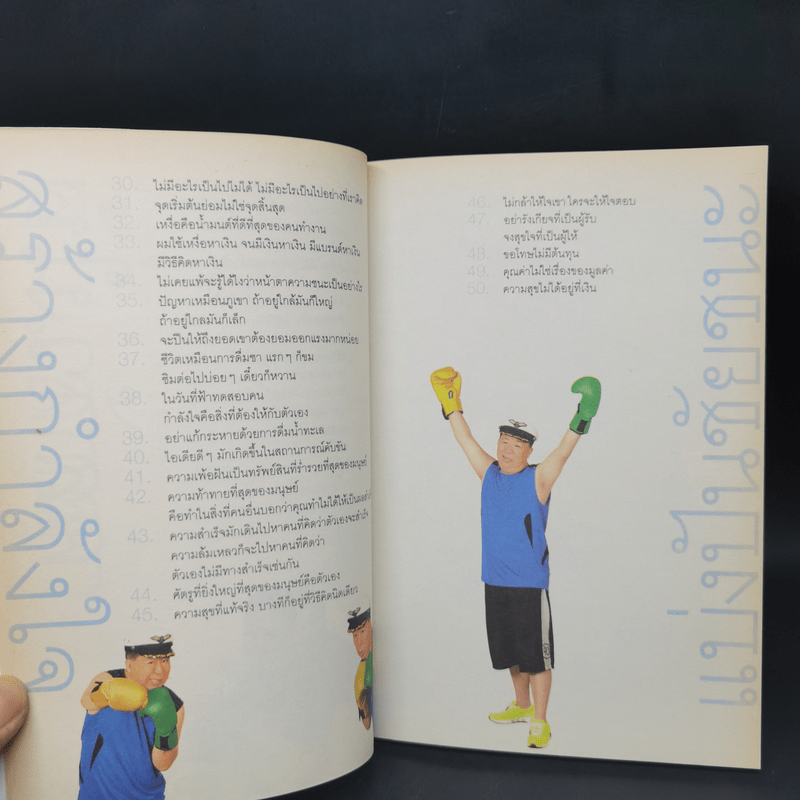 สร้างกำลังใจ
30. ไม่มีอะไรเป็นไปไม่ได้ ไม่มีอะไรเป็นไปอย่างที่เราคิด
31. จุดเริ่มต้นย่อมไม่ใช่จุดสิ้นสุด
32. เหงื่อคือน้ำมนต์ที่ดีที่สุดของคนทำงาน
33. ผมใช้เหงื่อหาเงิน จนมีเงินหาเงิน มีแบรนด์หาเงิน
มีวิธีคิดหาเงิน
34. ไม่เคยแพ้จะรู้ได้ไงว่าหน้าตาความชนะเป็นอย่างไร
35. ปัญหาเหมือนภูเขา ถ้าอยู่ใกล้มันก็ใหญ่
ถ้าอยู่ไกลมันก็เล็ก
36. จะปีนให้ถึงยอดเขาต้องยอมออกแรงมากหน่อย
37. ชีวิตเหมือนการดื่มชา แรกๆ ก็ขม
ชิมต่อไปบ่อยๆ เดี๋ยวก็หวาน
38. ในวันที่ฟ้าทดสอบคน
กำลังใจคือสิ่งที่ต้องให้กับตัวเอง
39. อย่าแก้กระหายด้วยการดื่มน้ำทะเล
40. ไอเดียดีๆ มักเกิดขึ้นในสถานการณ์คับขัน
41. ความเพ้อฝันเป็นทรัพย์สินที่ร่ำรวยที่สุดของมนุษย์
42. ความท้าทายที่สุดของมนุษย์
คือทำในสิ่งที่คนอื่นบอกว่าคุณทำไม่ได้ให้เป็น
43. ความสำเร็จมักเดินไปหาคนที่คิดว่าตัวเองจะสำเร็จ
ความล้มเหลวก็จะไปหาคนที่คิดว่า
ตัวเองไม่มีทางสำเร็จเช่นกัน
44. ศัตรูที่ยิ่งใหญ่ที่สุดของมนุษย์คือตัวเอง
45. ความสุขที่แท้จริง บางทีก็อยู่ที่วิธีคิดนิดเดียว
46. ไม่กล้าให้ใจเขา ใครจะให้ใจตอบ
47. อย่ารังเกียจที่เป็นผู้รับ
จงสุขใจที่เป็นผู้ให้
48. ขอโทษไม่มีต้นทุน
49. คุณค่าไม่ใช่เรื่องของมูลค่า
50. ความสุขไม่ได้อยู่ที่เงิน